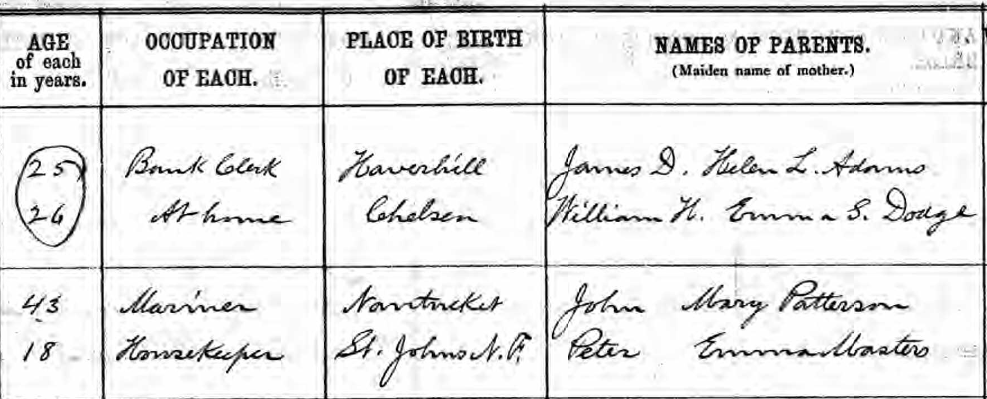 AGE of each in years. OCCUPATION OF EACH. PLACE OF BIRTH OF EACH. NAMES OF PARENTS. (Maiden name of mother.)
25 Bank Clerk Haverhill James D. Helen L. Adams
26 At home Chelsea William H. Emma S. Dodge
43 Mariner Nantucket John Mary Patterson
18 Housekeeper St. Johns N.F. Peter Emma Masters